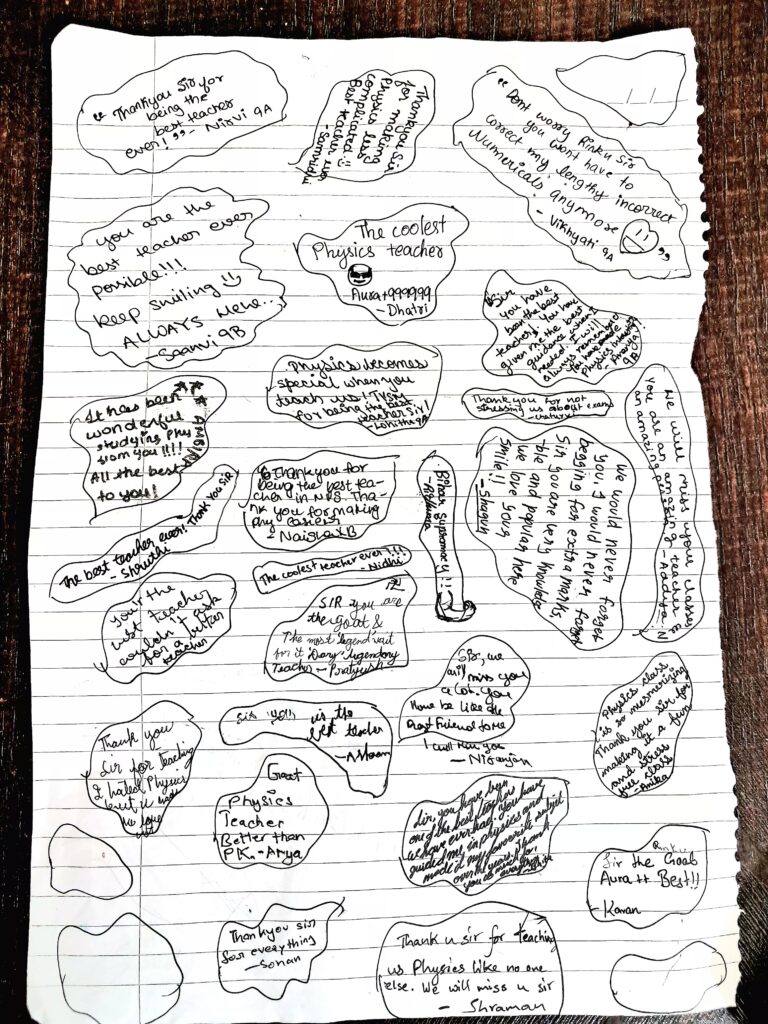 “Thankyou Sir for
being the
best teacher
ever!” - Nirvi 9A
Thankyou Sir
for making
Physics less
complicated!!
Best teacher ever
- Samridhi
“Dont worry Rinku Sir
you wont have to
correct my lengthy incorrect
Numericals anymore
- Vikhyati 9A ”
you are the
best teacher ever
possible!!!
keep smiling
ALWAYS
- Saanvi 9B
The coolest
Physics teacher
Aura+999999
- Dhatri
Sir
you have
been the best
teacher. You have
given me the best
guidance when I
needed it. I will
always remember
Physics
- Ananya
9B
Physics becomes
special when you
teach us! TYSM
for being the best
teacher Sir!
- Lohitha 9A
Thank you for not
stressing us about exams
We will miss your classes
You are an amazing teacher &
an amazing person - Aaditya N
It has been
wonderful
studying Phy
from you!!!!
All the best
to you!
The best teacher ever! Thank you SIR
- Shruthi
Thankyou for
being the best tea-
cher in NPS. Tha-
nk you for making
Phy easier
- Naisha B
The coolest teacher ever!!!
- Nidhi
Bohar supremacy!!!
We would never forget
you. I would never forget
begging for extra marks.
Sir you are very knowledge
-ble and popular here
we love your
smile!!
- Shagun
Your the
best teacher
couldn't ask
for a better
teacher
SIR you are
the goat &
The most 'legend' wait
for it 'Dary' legendary
Teacher - Pratyush
Sir, we
will miss you
a lot. You
Have be like the
Best Friend to me
I will miss you
- Niranjan
Sir your
is the
best teacher
Physics class
is so mesmerizing
Thank you sir for
making it a fun
and stress
free class
- Anika
Thank you
Sir for Teaching
I hated Physics
but u made
me love
it
Great
Physics
Teacher
Better than
P.K. - Arya
Sir you have been
one of the best teachers
I have ever had. You have
guided me in physics and
made it my favourite subject
over the years. Thank
you for everything
Rinku
Sir the Goat
Aura ++ Best!!
- Karan
Thankyou sir
for everything
- Sohan
Thank u sir for teaching
us Physics like no one
else. We will miss u sir
- Shraman